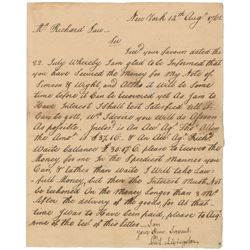 New York 12th Augt 1765
Mr Richard Law
Sir
I rec'd your favour dated the
22 July Whereby I am glad to be Informed that
you have Secured the Money for My Note of
Simeon & Wight, and Altho it will be Some
time before it Can be recovered yet as I am to
have Interest I shall rest Satisfied till it
Can be gott, Mr you will do as Soon
As possible, Inclosed is an Acct Agt
the Amot is £ 37.6 An Acct Agt
Waite Ballance £ 30.5.6 please to recover the
Money for me In the Speediest Manner you
Can, & rather than Waite I will take Law-
full Money, but then the Interest Must not
be reckoned On the Money longer than 3 Mo
After the delivery of the goods, for at that
time I was to Have been paid, please to
me of the rec't of this Letter I am
your Hum Servant
Livingston